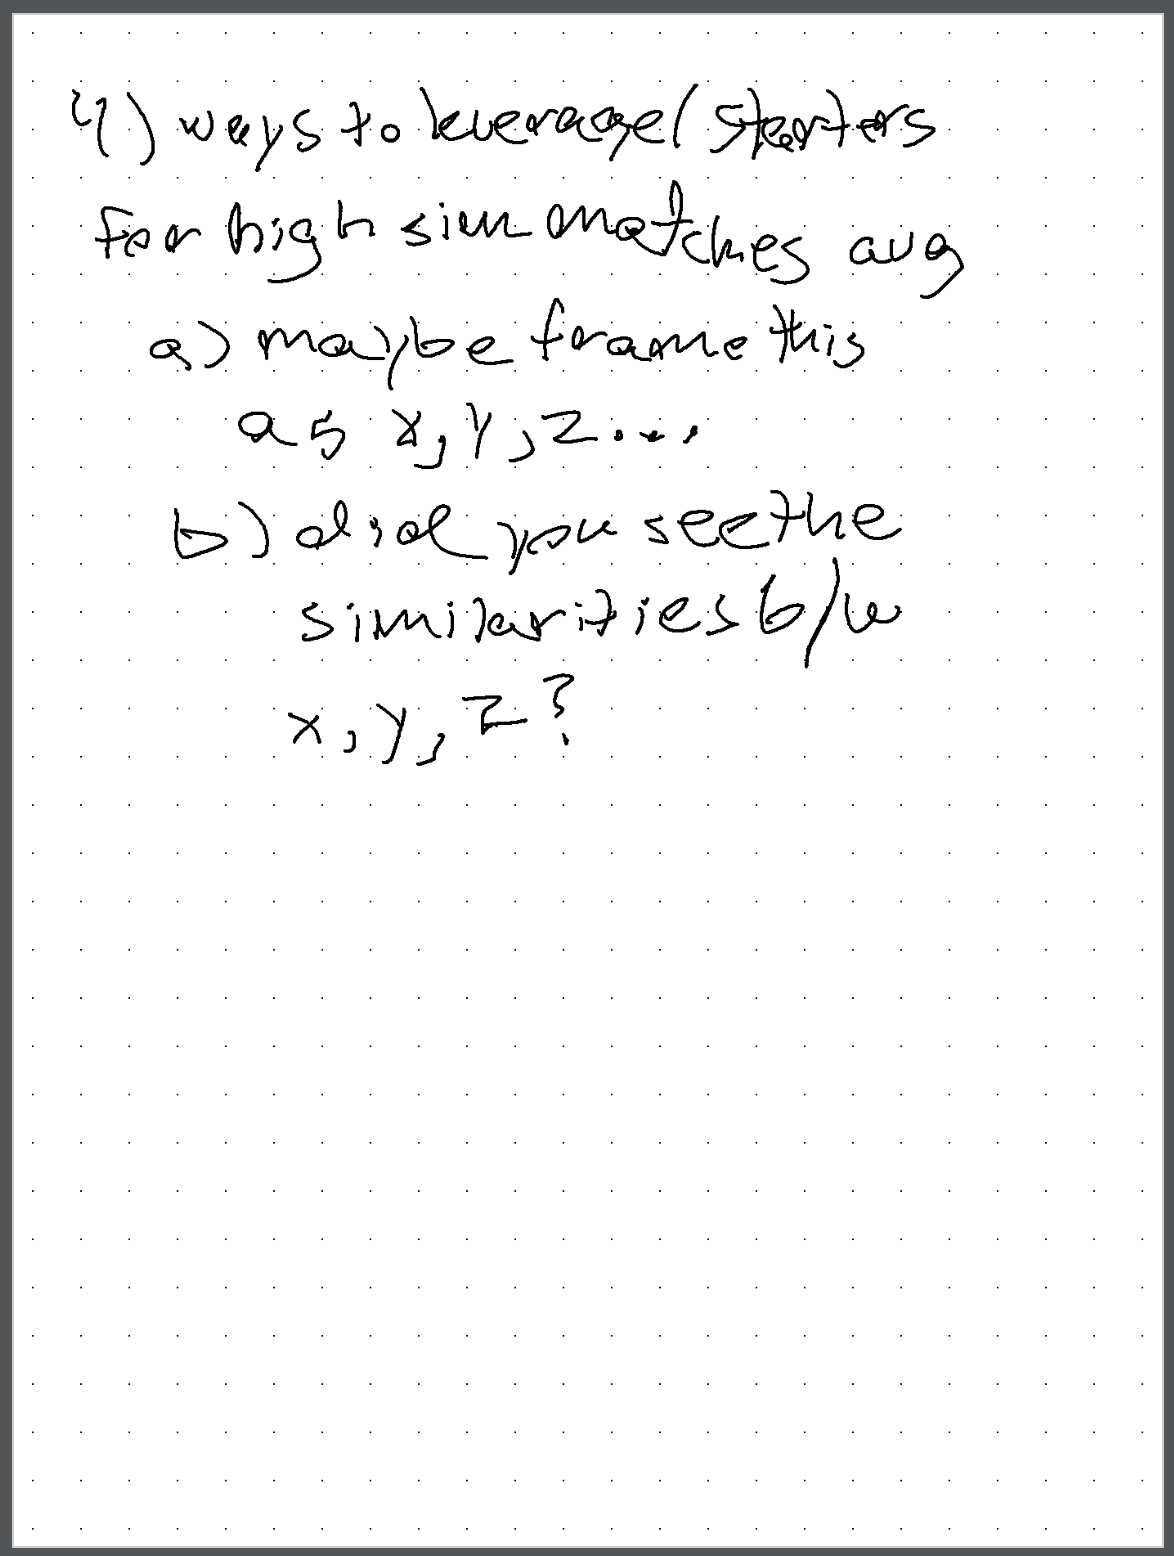 4) ways to leverage/starters
for high sim matches avg
a) maybe frame this
as x, y, z...
b) did you see the
similarities b/w
x, y, z?